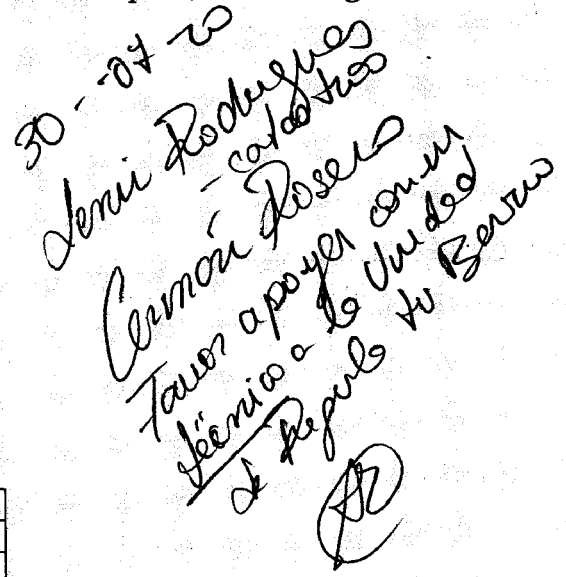 30--07-20
Lenin Rodrigues
- catastros
Rosero
Favor apoyar con un
técnico a la Unidad
de Regula tu Barrio